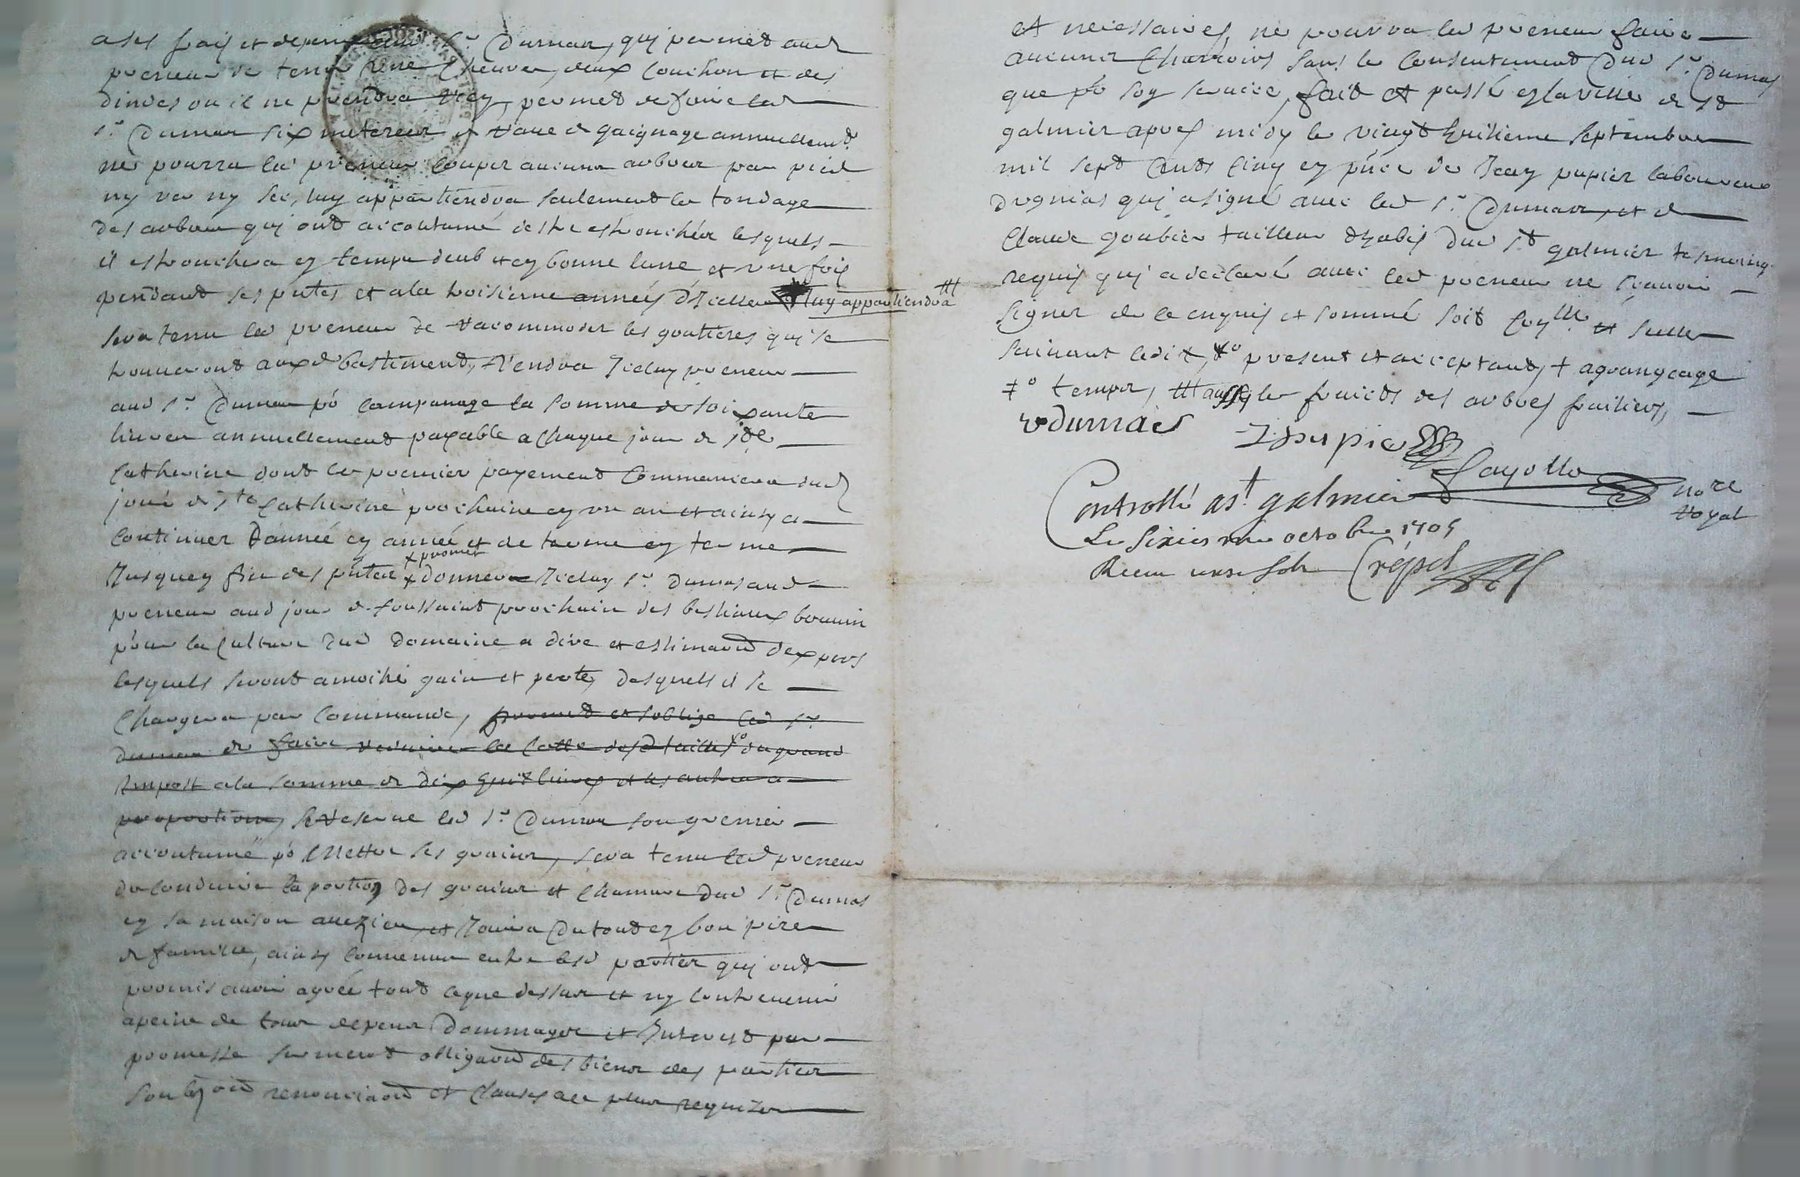 a ses frais et depens led Sr. Dumas, qui permet aud
preneur de tenir une cheuvre, deux couchon et des
dindes ou il ne prendra rien, permet de faire led
Sr. Dumas six de gaignage annuellemt.
ne pourra led preneur couper aucuns arbres par pied
ny ver ny sec, luy appartiendra seulement la tondage
des arbres qui ont accoutumé destre estronchés lesquels
il estronchera en temps deub et en bonne lune et une fois
pendant ses pntes et a la troisieme année d'Icelles luy appartiendra
sera tenu led preneur de racommoder les gouttieres qui se
trouveront aux d bastiments, rendra Iceluy preneur
aud Sr. Dumas po campanage la somme de soixante
livres annuellement payable a chaque jour de Ste
Catherine dont le premier payement commencera aud
jour de Ste Catherine prochaine en un an et ainsy a
continuer d'année en année et de terme en terme
Jusques fin des pntes + promet donner Iceluy Sr. Dumas aud
preneur aud jour de Toussaint prochain des bestiaux bouvin
pour la culture dud domaine a dire et estimaon d'expers
lesquels seront a moitié gain et perte, desquels il se
chargera par commande, promet et soblige led Sr.
dumas de faire reduire la cotte des d tailles xo du grand
Impost a la somme de dix huit livres et les autres a
proportion, se reserve led Sr. Dumas son grenier
accoutumé po mettre ses grains, sera tenu led preneur
de conduire la portion des grains et chanvre dud Sr. Dumas
en sa maison et Jouira du tout en bon pere
de famille, ainsy convenu entre lesd parties qui ont
promis avoir agréé tout ce que dessus et ny contrevenir
a peine de tous depens dommages et Interest par
promesse serment obligaon des biens des parties
renonciaon et clauses a ce plus requises
et necessaires, ne pourra led preneur faire
aucuns charrois sans le consentement dud Sr. Dumas
que po son service, fait et passé en la ville de St
galmier apres midy le vingt huitieme septembre
mil sept cents cinq en pnce de Jean papier laboureur
qui a signé avec led Sr. Dumas, et de
Claude goubier tailleur d'habis dud St galmier tesmoings
requis qui a declaré avec led preneur ne sçavoir
signer de ce enquis et sommé soit conlle et scelle
suivant ledit, xo present et acceptant, + a grangeage
+o temps, ttt aussy les fruicts des arbres fruitiers,
Dumas
Controllé a St galmier
Le sixiesme octobre 1705
Receu Crépet
Fayolle
nore
Royal